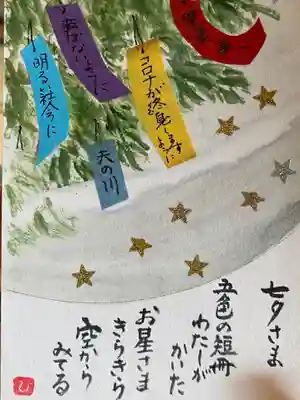 コロナが終息します
ように
転ばないように
明るい社会に
天の川
七夕さま
五色の短冊
わたしが
かいた
お星さま
きらきら
空から
みてる
ひ